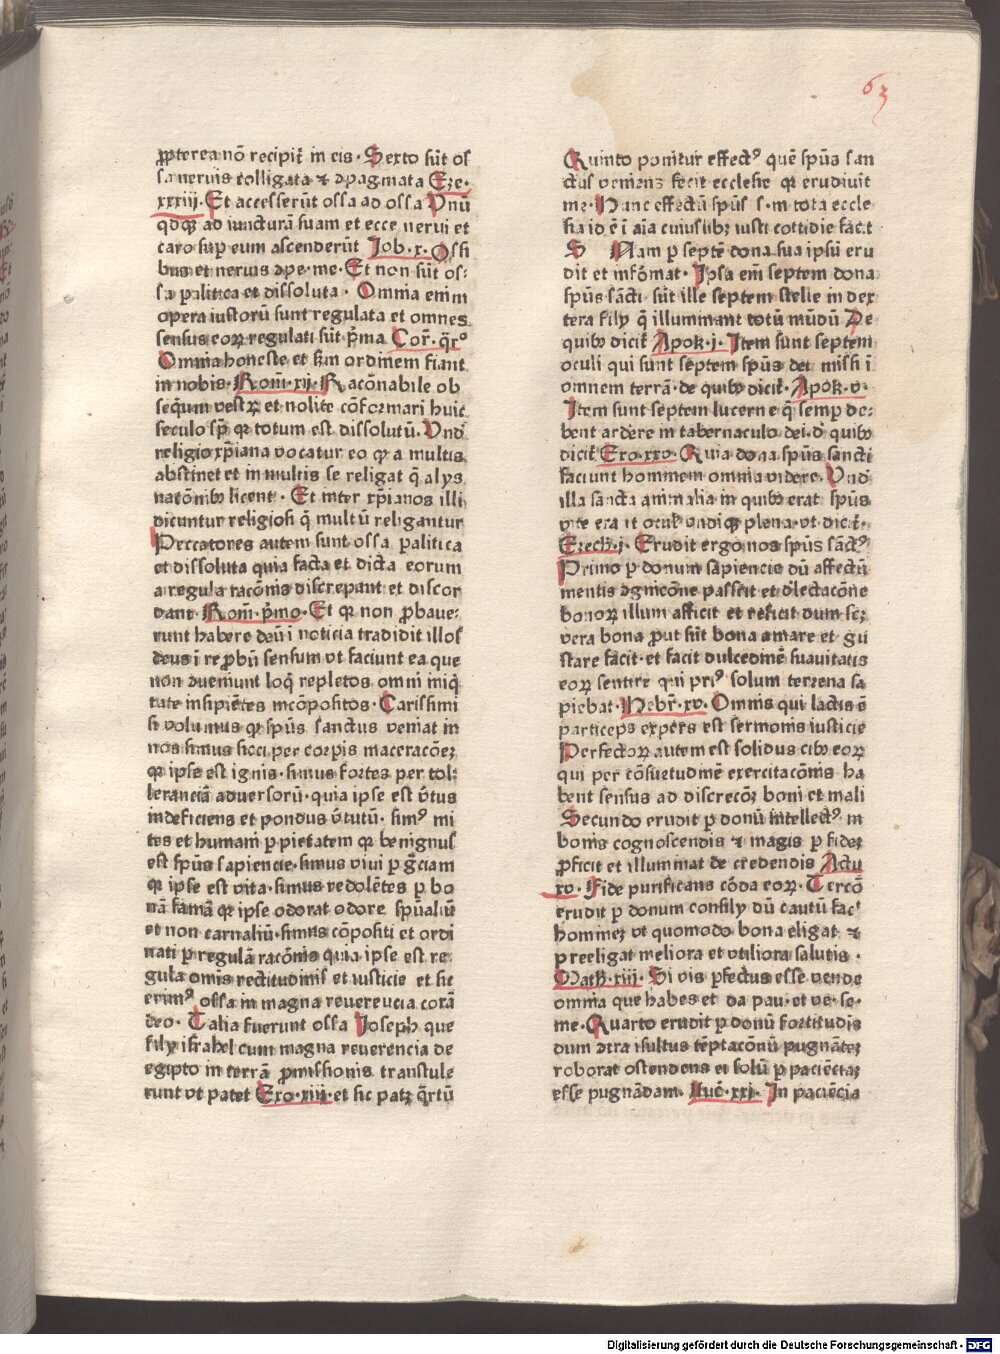 63
ꝓpterea nō recipit᷑ in eis · Sexto sūt os
sa neruis colligata ⁊ ꝯpagmata Eze·
xxxiij. Et accesserūt ossa ad ossa Vnū
qdqꝫ ad iuncturā suam et ecce nerui et
caro suꝑ eum ascenderūt Job·x· Ossi
bus et neruis ꝯpe·me· Et non sūt os⸗
sa palitica et dissoluta · Omnia enim
opera iustorū sunt regulata et omnes
sensus eoꝝ regulati sūt p̄ma Cor̄·
Omnia honeste et sm̄ ordinem fiant
in nobis· Rom̄·xij· Racōnabile ob
seq̄um vestꝝ et nolite cōformari huic
seculo sp̄ qꝛ totum est dissolutū· Vnd̄
religio xp̄iana vocatur eo ꝙ a multis
abstinet et in multis se religat q̄ alijs
natōnibꝫ licent · Et inter xp̄ianos illi
dicuntur religiosi q̄ multū religantur
Peccatores autem sunt ossa palitica
et dissoluta quia facta et dicta eorum
a regula racōnis discrepant et discor
dant Rom̄·p̄mo· Et qꝛ non ꝓbaue⸗
runt habere deū ī noticia tradidit illos
deus ī reꝓbū sensum vt faciunt ea que
non ꝯueniunt loq̄ repletos omni iniq̄
tate insipiētes incōpositos· Carissimi
si volumus qꝫ spūs sanctus veniat in
nos simus sicci per corpis maceracōeꝫ
qꝛ ipse est ignis· simus fortes per tol⸗
leranciā aduersorū· quia ipse est v̄tus
indeficiens et pondus v̄tutū· simꝰ mi
tes et humani ꝑ pietatem qꝛ benignus
est spūs sapiencie· simus viui ꝑ gr̄ciam
qꝛ ipse est vita· simus redolētes ꝑ bo
nā famā qꝛ ipse odorat odore spūaliū
et non carnaliū· simus cōpositi et ordi
nati ꝑ regulā racōnis quia ipse est re⸗
gula omīs rectitudinis et iusticie et sic
erimꝰ ossa in magna reuerencia corā
deo· Talia fuerunt ossa Joseph que
filij israhel cum magna reuerencia de
egipto in terrā ꝓmissionis transtule
runt vt patet Exo·xiij·et sic patꝫ q̄rtū
Quinto ponitur effectꝰ quē spūs san
ctus veniens fecit ecclesie qꝛ erudiuit
me· Hunc effectū spūs s· in tota eccle
sia id ē ī aīa cuiuslibꝫ iusti cottidie facit
S Nam ꝑ septē dona sua ipsū eru
dit et infōmat· Ipsa em̄ septem dona
spūs sācti sūt ille septem stelle in dex
tera filij q̄ illuminant totū mūdū De
quibꝫ dicit᷑ Apok·j· Item sunt septem
oculi qui sunt septem spūs dei missi ī
omnem terrā·de quibꝫ dicit᷑· Apok·v·
Item sunt septem lucerne q̄ semꝑ de⸗
bent ardere in tabernaculo dei·d̄ quibꝫ
dicit᷑ Exo·xxv· Quia dona spūs sancti
faciunt hominem omnia videre· Vnd̄
illa sancta animalia in quibꝫ erat spūs
vite erāt oculis vndiqꝫ plena·vt dicit᷑·
Ezech·j· Erudit ergo nos spūs sāctꝰ
Primo ꝑ donum sapiencie dū affectū
mentis ꝯgnicōne passcit et ꝺ̄lectacōne
bonoꝝ illum afficit et reficit dum se⸗
vera bona ꝓut sūt bona amare et gu
stare facit·et facit dulcedinē suauitatis
eoꝝ sentire qui priꝰ solum terrena sa
piebat· Hebr̄·xv· Omnis qui lactis ē
particeps expers est sermonis iusticie
Perfectoꝝ autem est solidus cibꝫ eoꝝ
qui per cōsuetudinē exercitacōnis ha
bent sensus ad discrecōꝫ boni et mali
Secundo erudit ꝑ donū intellectꝰ in
bonis cognoscendis ⁊ magis ꝑ fideꝫ
ꝓficit et illuminat de credendis Actu
xv· Fide purificans cōda eoꝝ· Tercō
erudit ꝑ donum consilij dū cautū facᵗ
homineꝫ vt quomodo bona eligat ⁊
preeligat meliora et vtiliora salutis ·
Math·xiij· Si vis ꝑfectus esse vende
omnia que habes et da pau·et ve·se·
me· Quarto erudit ꝑ donū fortitudis
dum ꝯtra īsultus tēptacōnū pugnāteꝫ
roborat ostendens ei solū ꝑ paciēciaꝫ
esse pugnādam· Luc̄·xxj· In paciēcia
Digitalisierung gefördert durch die Deutsche Forschungsgemeinschaft - DFG